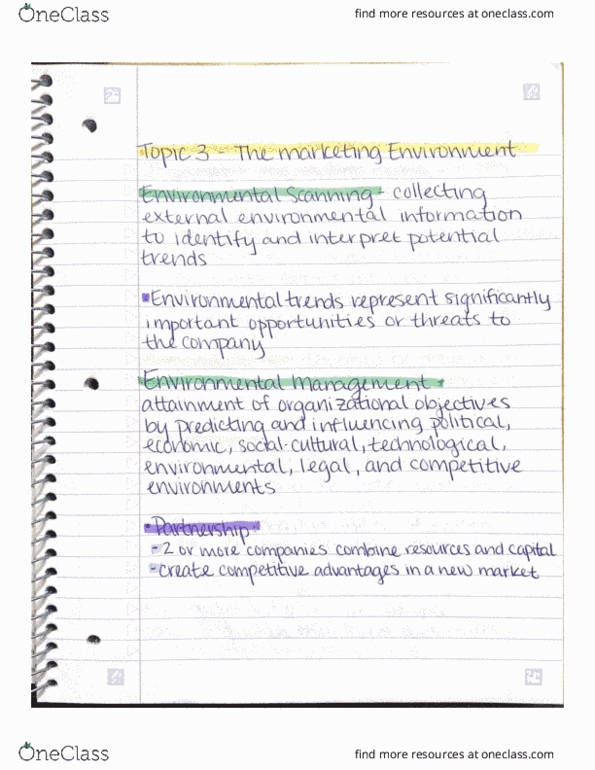 OneClass
find more resources at oneclass.com
Topic 3 - The marketing Environment
Environmental Scanning - collecting
external environmental information
to identify and interpret potential
trends
Environmental trends represent significantly
important opportunities or threats to
the company
Environmental Management -
attainment of organizational objectives
by predicting and influencing political,
economic, social-cultural, technological,
environmental, legal, and competitive
environments
• Partnership
- 2 or more companies combine resources and capital
- create competitive advantages in a new market
OneClass
find more resources at oneclass.com